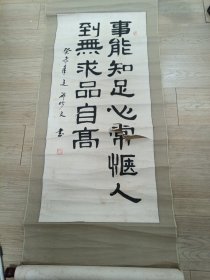 事能知足心常惬人
到無求品自高
癸未年夏
書